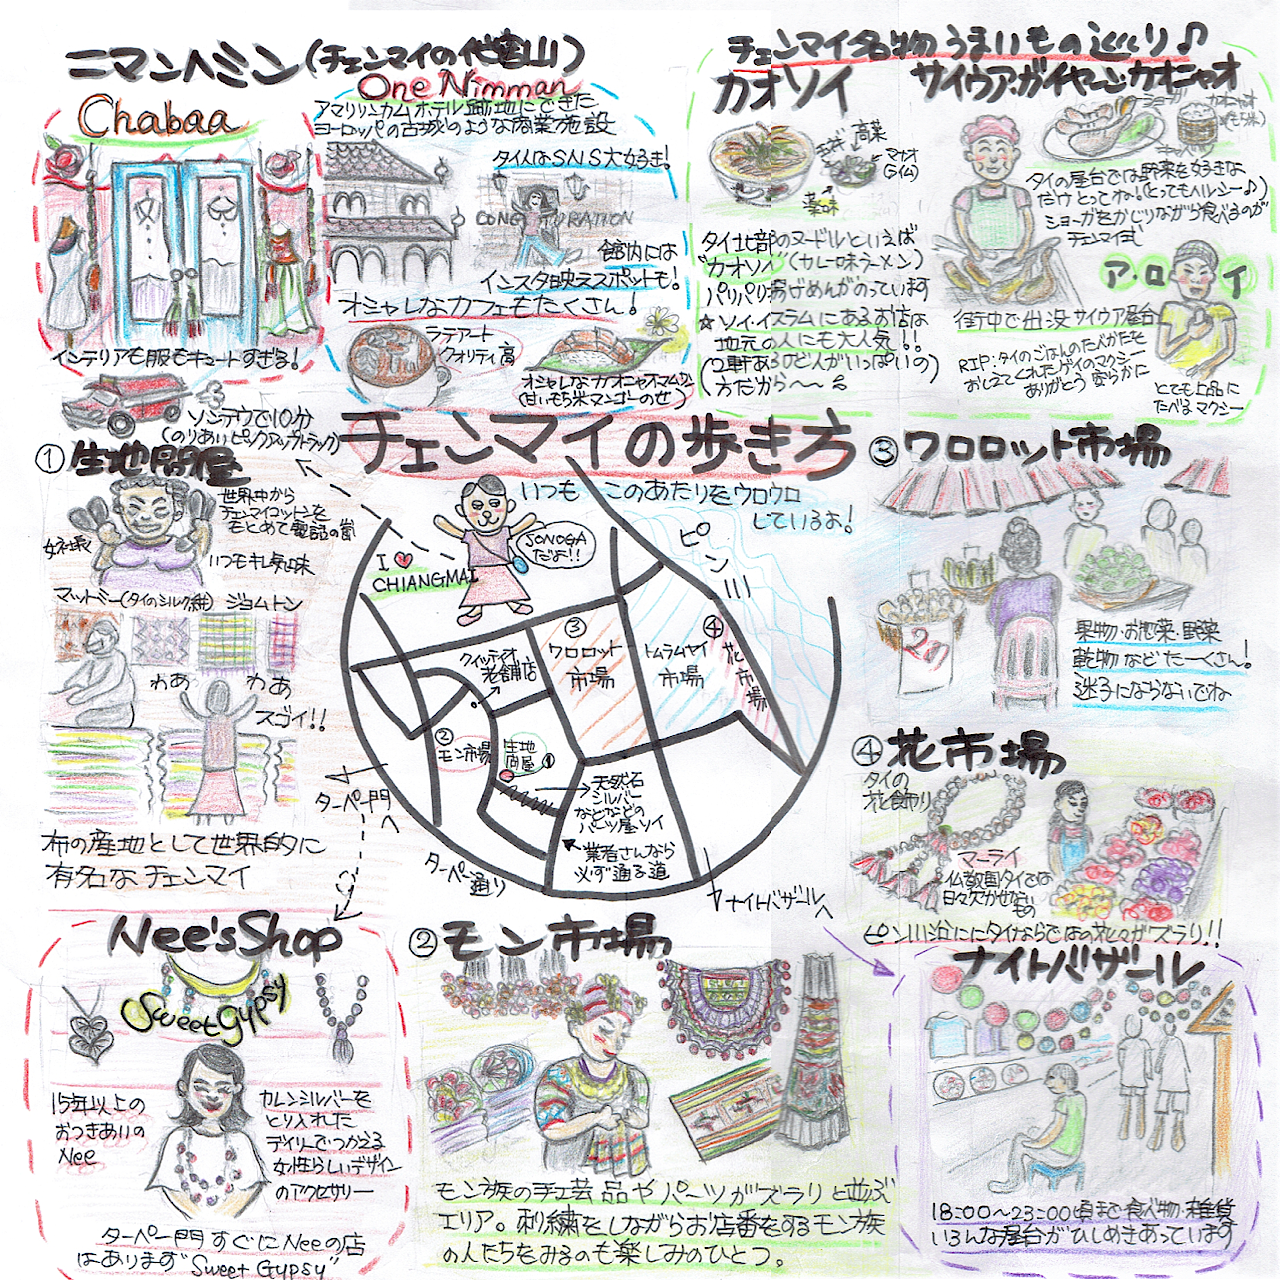 ニマンヘミン(チェンマイの代官山)
Chabaa
インテリアも服もキュートすぎる!
One Nimman
アマリリンカムホテル跡地にできた
ヨーロッパの古城のような商業施設
タイ人はSNS大好き!
館内には
インスタ映えスポットも!
オシャレなカフェもたくさん!
ラテアート
クオリティ高
オシャレなカオニャオマムアン
(甘いもち米マンゴーのせ)
チェンマイ名物うまいもの巡り♪
カオソイ
高菜
マナオ
(ライム)
薬味
タイ北部のヌードルといえば
"カオソイ"(カレー味ラーメン)
パリパリ揚げめんがのっています
☆ソイ・イスラムにあるお店は
地元の人にも大人気!!
(2軒あるけど人がいっぱいの
方だから〜〜
サイウア・ガイヤーン・カオニャオ
ショーガ
カオニャオ
(もち米)
キャベツ
タイの屋台では野菜を好きな
だけとってね!(とってもヘルシー♪)
ショーガをかじりながら食べるのが
チェンマイ式
ア・ロ・イ
街中で出没サイウア屋台
RIP:タイのごはんのたべかたを
おしえてくれたゲイのマクシー
ありがとう 安らかに
とても上品に
たべるマクシー
ソンテウで10分
(のりあいピックアップトラック)
チェンマイの歩き方
いつも このあたりをウロウロ
しているよ!
SONOGA
だよ!!
I ♥
CHIANGMAI
ピン川
① 生地問屋
世界中から
チェンマイコットンを
もとめて電話の嵐
女社長
いつもキレ気味
マットミー(タイのシルク絣)
ジョムトン
わあ
わあ
スゴイ!!
布の産地として世界的に
有名なチェンマイ
クイッティオ
老舗店
③
ワロロット
市場
トムラムヤイ
市場
④
花市場
②
モン市場
生地
問屋
①
天然石
シルバー
などなどの
パーツ屋ソイ
業者さんなら
必ず通る道
ターペー門へ
ターペー通り
ナイトバザールへ
③ ワロロット市場
20
果物・お惣菜・野菜
乾物などたーくさん!
迷子にならないでね
④ 花市場
タイの
花飾り
マーライ
仏教国タイでは
日々欠かせない
もの
ピン川沿いにタイならではの花々がズラリ!!
Nee'sShop
Sweet Gypsy
15年以上の
おつきあいの
Nee
カレンシルバーを
とり入れた
デイリーでつかえる
女性らしいデザイン
のアクセサリー
ターペー門すぐにNeeの店
はあります"Sweet Gypsy"
② モン市場
モン族の手工芸品やパーツがズラリと並ぶ
エリア。刺繍をしながらお店番をするモン族
の人たちをみるのも楽しみのひとつ。
ナイトバザール
18:00〜23:00頃まで食べ物・雑貨
いろんな屋台がひしめきあっています